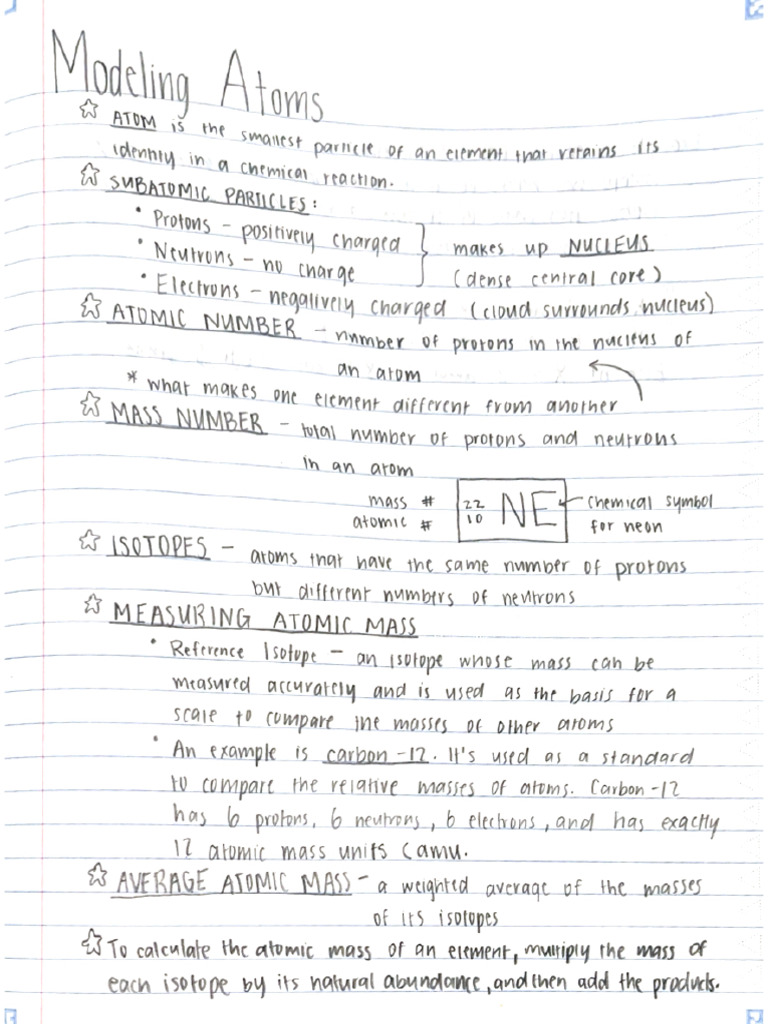 Modeling Atoms
☆ ATOM is the smallest particle of an element that retains its
identity in a chemical reaction.
☆ SUBATOMIC PARTICLES:
• Protons – positively charged
• Neutrons – no charge
} makes up NUCLEUS
(dense central core)
• Electrons – negatively charged (cloud surrounds nucleus)
☆ ATOMIC NUMBER – number of protons in the nucleus of
an atom
* what makes one element different from another
☆ MASS NUMBER – total number of protons and neutrons
in an atom
mass # 22 NE ← chemical symbol
atomic # 10 for neon
☆ ISOTOPES – atoms that have the same number of protons
but different numbers of neutrons
☆ MEASURING ATOMIC MASS
• Reference Isotope – an isotope whose mass can be
measured accurately and is used as the basis for a
scale to compare the masses of other atoms
• An example is carbon-12. It's used as a standard
to compare the relative masses of atoms. Carbon-12
has 6 protons, 6 neutrons, 6 electrons, and has exactly
12 atomic mass units (amu.
☆ AVERAGE ATOMIC MASS – a weighted average of the masses
of its isotopes
☆ To calculate the atomic mass of an element, multiply the mass of
each isotope by its natural abundance, and then add the products.